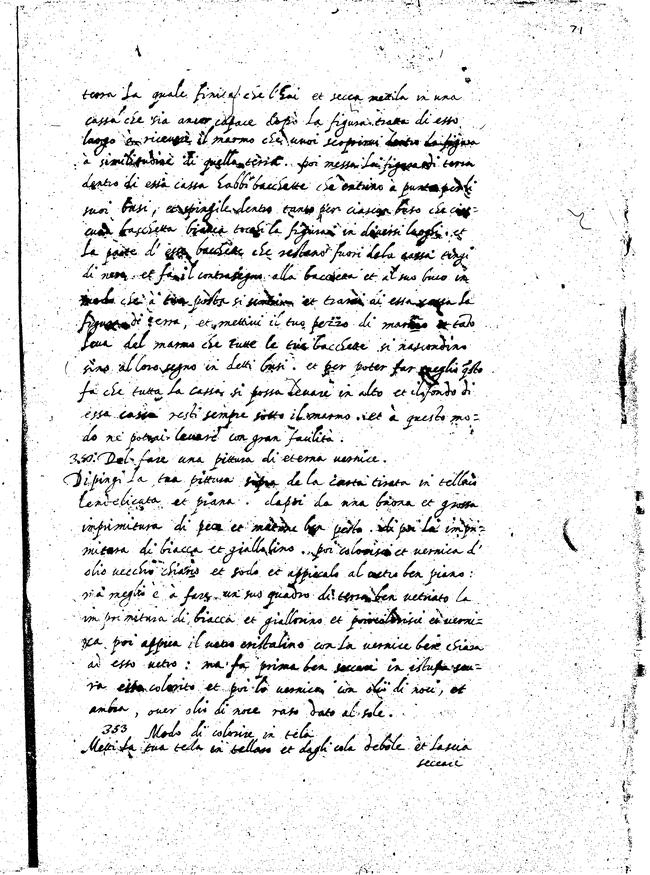 71
terra La quale finita che l'hai et secca mettila in una
cassa che sia ancor capace dopo la figura tratta di esso
luogo à ricevere il marmo che vuoi scoprirvi dentro la figura
à similitudine di quella terra. poi messa la figura di terra
dentro di essa cassa habbi bacchette che entino à punto per li
suoi busi, et spingile dentro tanto per ciascun buso che cias=
cuna bacchetta bianca tocchi la figura in diversi luoghi. et
La parte d'esse bacchette che restano fuori dela cassa tingi
di nero, et fa il contrasegno alla bacchetta et al suo buco in
modo che à tua posta si et trarai di essa cassa la
figura di terra, et mettivi il tuo pezzo di marmo et tato
leva del marmo che tutte le tue bacchette si nascondino
sino al loro segno in detti busi. et per poter far meglio qsto
fa che tutta la cassa si possa levare in alto et il fondo di
essa cassa resti sempre sotto il marmo. et à questo mo=
do ne potrai levare con gran facilità.
Del fare una pittura di eterna vernice.
Dipingi La tua pittura sopra de la Carta tirata in tellaio
ben delicata et piana. dapoi da una buona et grossa
imprimitura di pece et mattone ben pesto. di poi la impri=
mitura di biacca et giallolino. poi colorisci et vernica d'
olio vecchio chiaro et sodo et appiccalo al vetro ben piano:
mà meglio è à fare un suo quadro di terra ben vetriato la
imprimitura di biacca et giallorino et poi colorisci et verni=
ca poi appica il vetro cristalino con la vernice ben chiara
ad esso vetro: ma fa prima ben seccare in estufa scu=
ra esso colorito et poi lo vernica con olio di noci, et
ambra, over olio di noce raso dato al sole.
353 Modo di colorire in tela
Metti la tua tela in tellaro et dagli cola debole et lascia
seccare